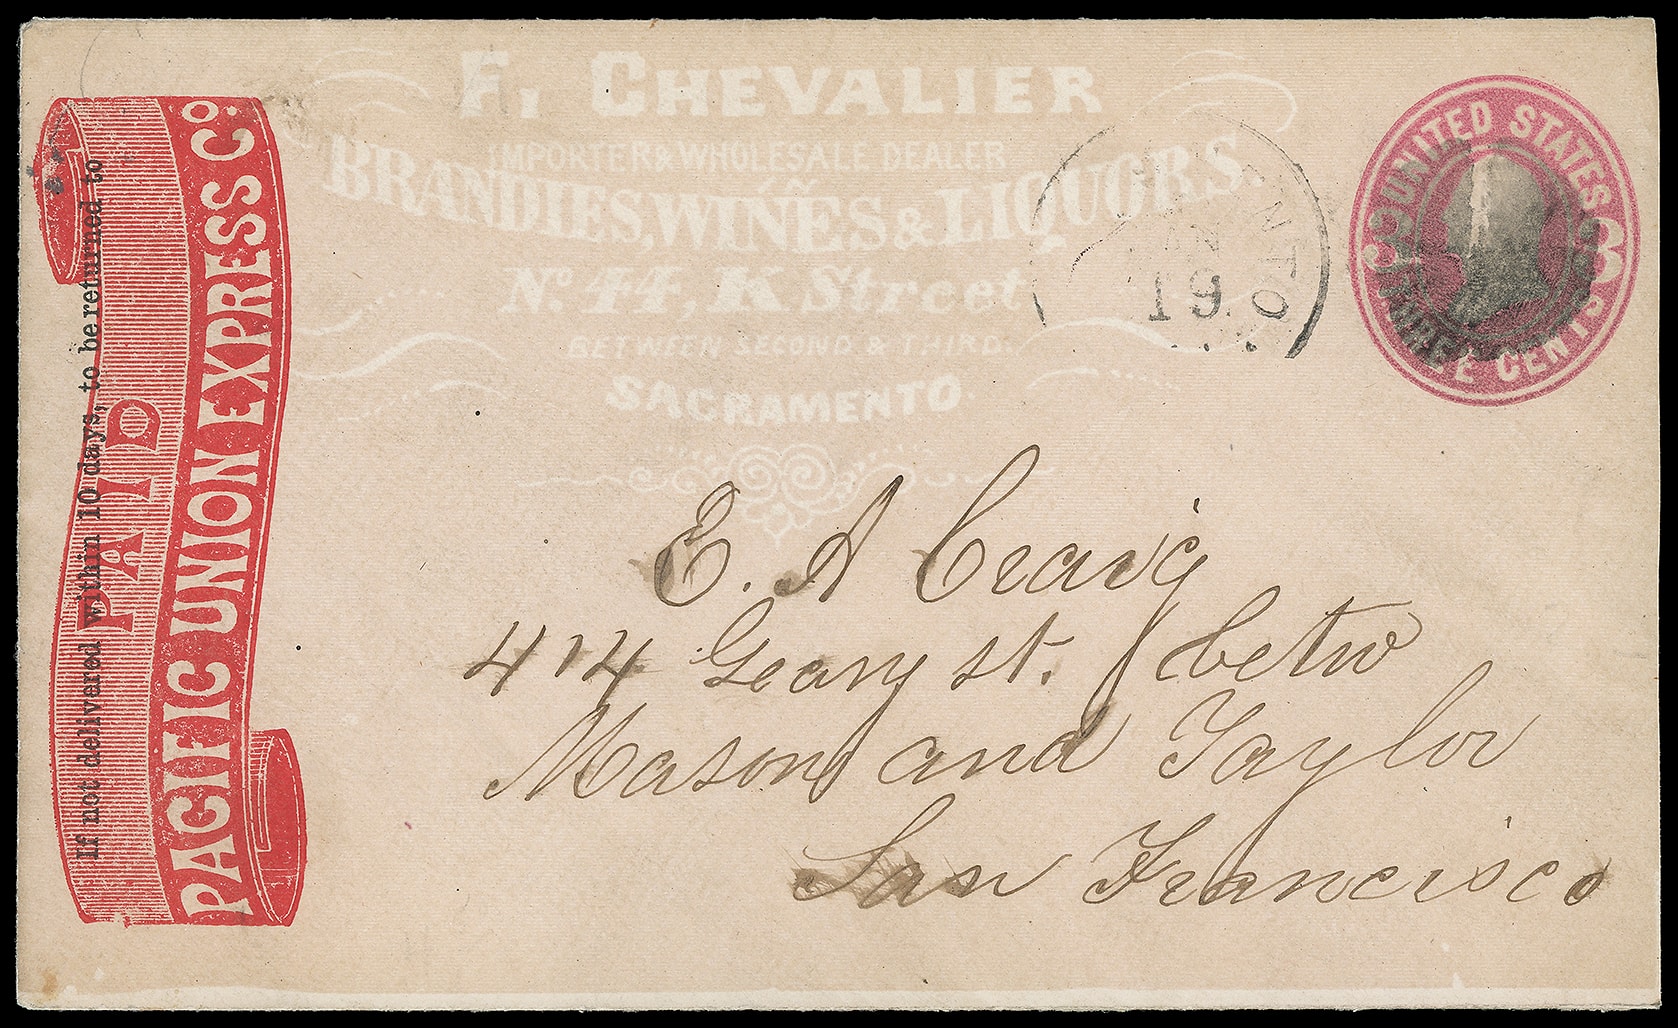 F. CHEVALIER
IMPORTER & WHOLESALE DEALER
BRANDIES, WINES & LIQUORS.
No. 44, K Street
BETWEEN SECOND & THIRD.
SACRAMENTO
PACIFIC UNION EXPRESS Co.
PAID
If not delivered within 10 days, to be returned to
UNITED STATES
3 3
THREE CENTS
19
E. A Craig
414 Geary st. betw
Mason and Taylor
San Francisco